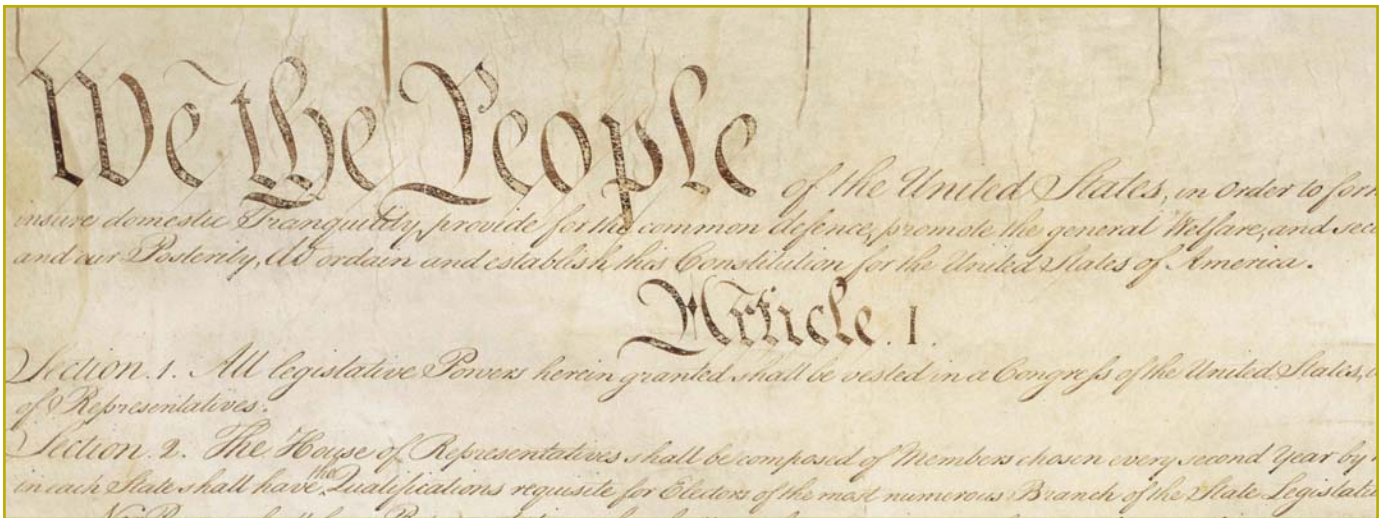 We the People of the United States, in Order to form
insure domestic Tranquility, provide for the common defence, promote the general Welfare, and
and our Posterity, do ordain and establish this Constitution for the United States of America.
Article. I.
Section. 1. All legislative Powers herein granted shall be vested in a Congress of the United States,
of Representatives.
Section. 2. The House of Representatives shall be composed of Members chosen every second Year by
in each State shall have the Qualifications requisite for Electors of the most numerous Branch of the State